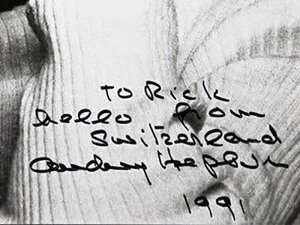 To Rick
hello from
Switzerland
Audrey Hepburn
1991